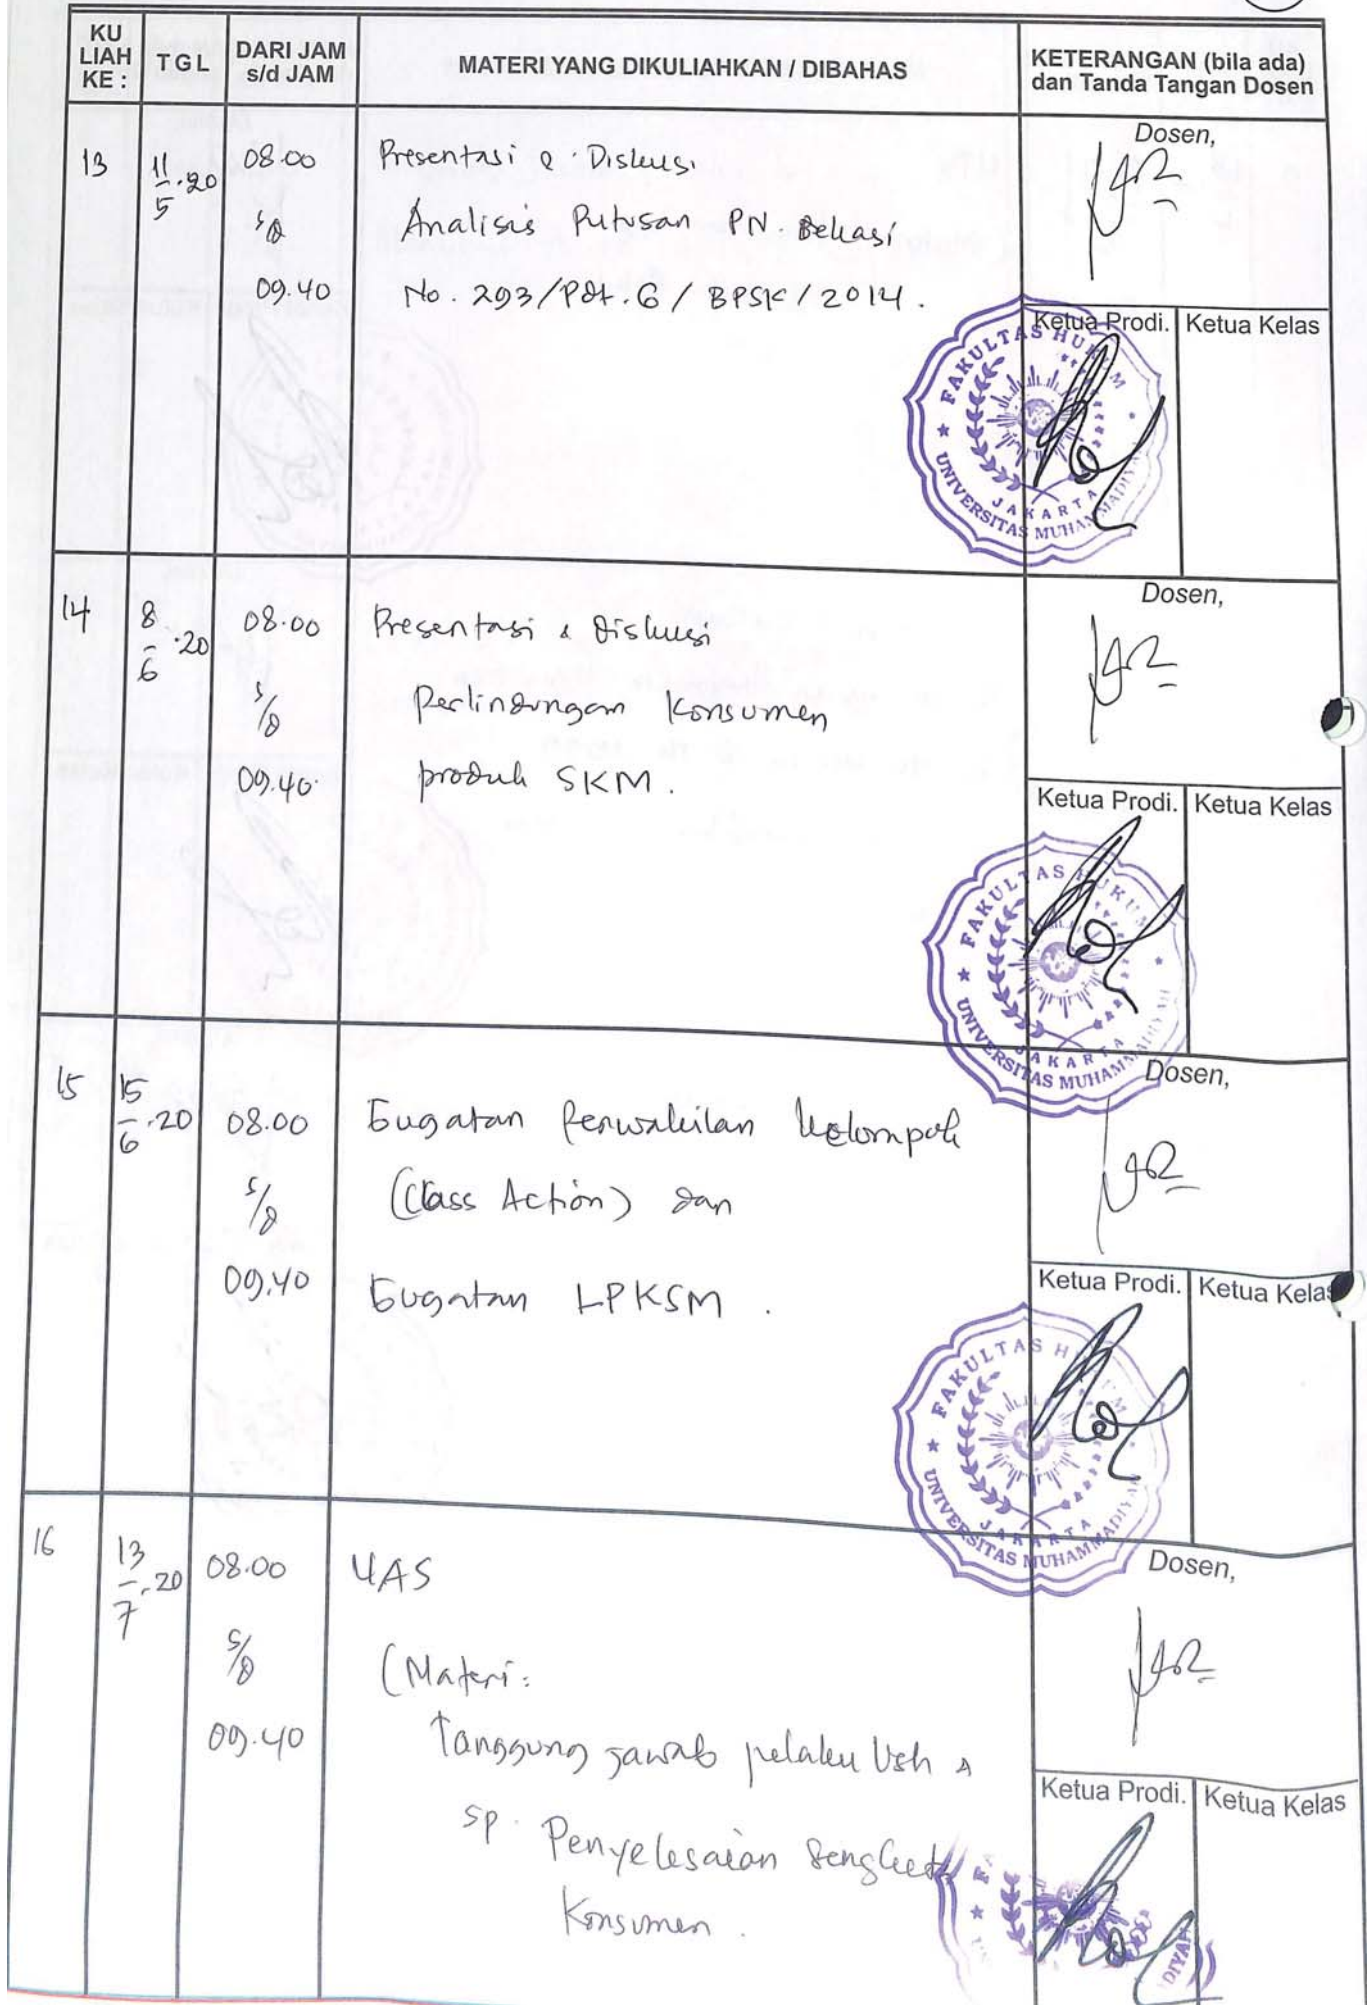 KU LIAH KE :
TGL
DARI JAM s/d JAM
MATERI YANG DIKULIAHKAN / DIBAHAS
KETERANGAN (bila ada) dan Tanda Tangan Dosen
13
11/5.20
08.00
s/d
09.40
Presentasi & Diskusi
Analisis Putusan PN. Bekasi
No. 293/Pdt.G/BPSK/2014.
Dosen,
Ketua Prodi.
Ketua Kelas
FAKULTAS HUKUM
UNIVERSITAS MUHAMMADIYAH
JAKARTA
14
8/6.20
08.00
s/d
09.40
Presentasi & Diskusi
Perlindungan Konsumen
produk SKM.
Dosen,
Ketua Prodi.
Ketua Kelas
FAKULTAS HUKUM
UNIVERSITAS MUHAMMADIYAH
JAKARTA
15
15/6.20
08.00
s/d
09.40
Gugatan Perwakilan kelompok
(Class Action) dan
Gugatan LPKSM.
Dosen,
Ketua Prodi.
Ketua Kelas
FAKULTAS HUKUM
UNIVERSITAS MUHAMMADIYAH
JAKARTA
16
13/7.20
08.00
s/d
09.40
UAS
(Materi:
Tanggung jawab pelaku Ush &
sp. Penyelesaian Sengketa
Konsumen.
Dosen,
Ketua Prodi.
Ketua Kelas
DIYAH